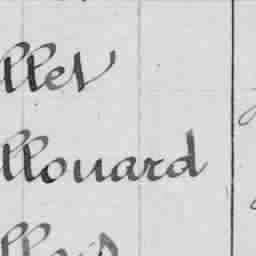 llet
llouard